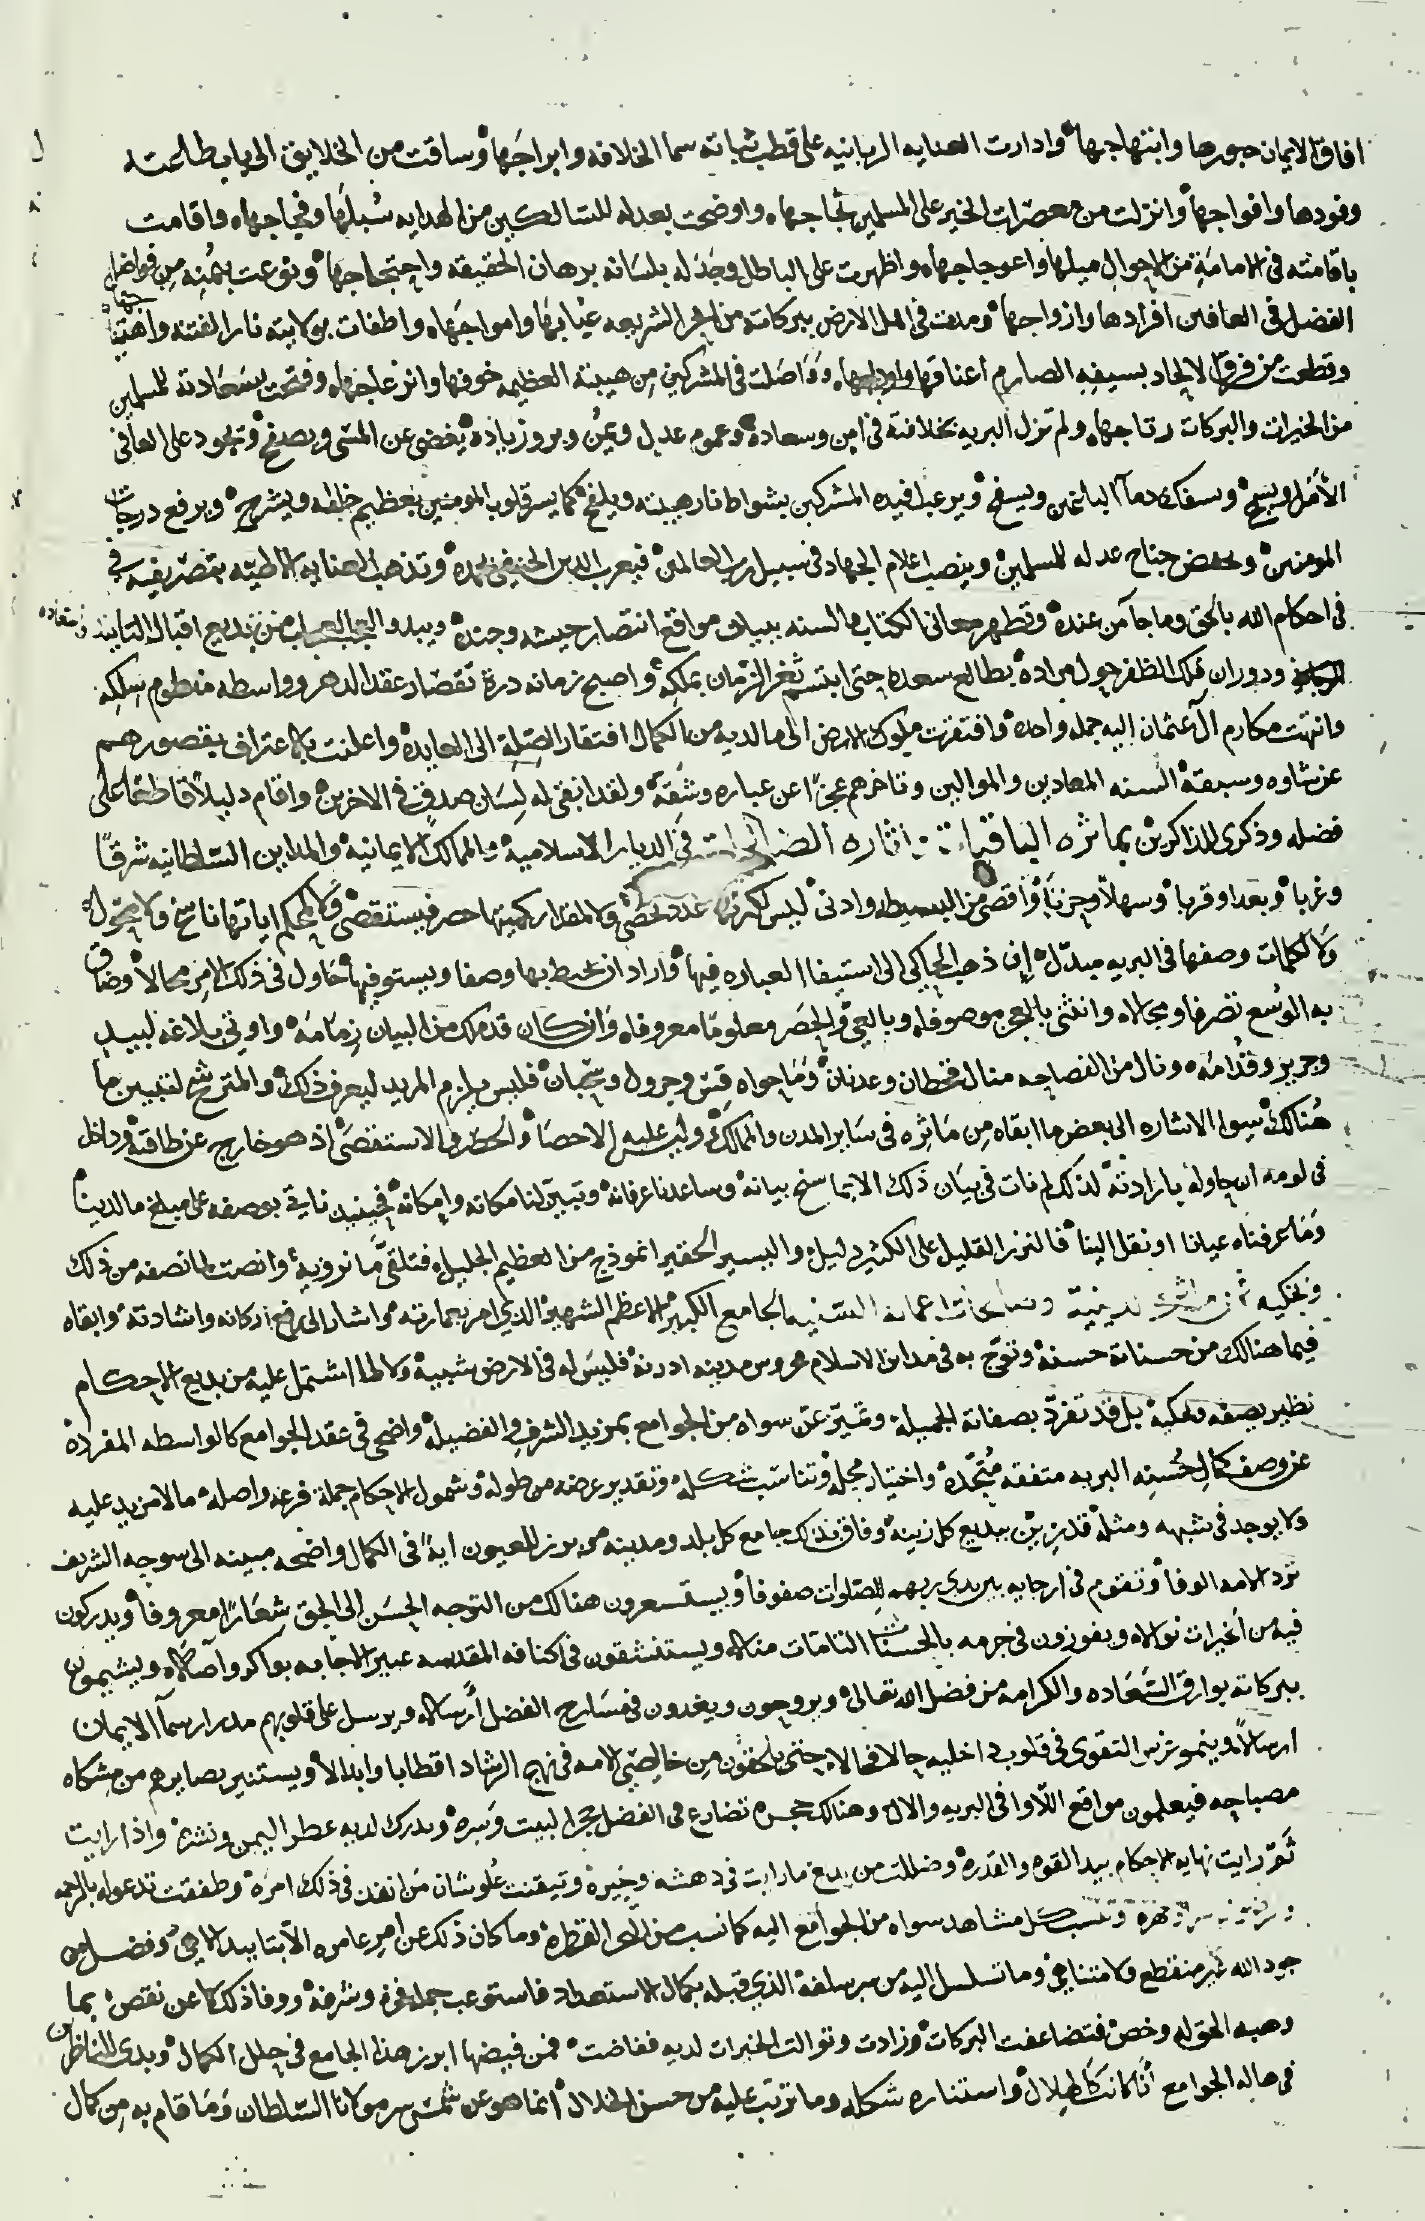 افاق الايمان حبورها وابتهاجها وادارت العنايه الربانيه على قطب ثباته سما الخلافه وابراجها وساقت من الخلايق الى باب طاعته
وفودها وافواجها وانزلت من معصرات الخير على المسلمين ثجاجها واوضحت بعدله للسالكين من الهدايه سبلها وفجاجها واقامت
باقامته في الامامة من الاحوال ميلها واعوجاجها واظهرت على الباطل وجدله بلسانه برهان الحقيقه واحتجاجها ونوعت بيمنه من فواضل
الفضل في العافين افرادها وازواجها ومدت في الارض ببركاته من بحر الشريعه عبابها وامواجها واطفات بولايته نار الفتنه واهتياجها
وقطعت من فرق الالحاد بسيفه الصارم أعناقها واوداجها وواصلت في المشركين من هيبته العظيمه خوفها وانزعاجها وفتحت بسعادته للمسلمين
من الخيرات والبركات رتاجها ولم تزل البريه بخلافته في امن وسعادة وعموم عدل ويمن وبر وزياده يغضي عن المسى ويصفح ويجود على العافي
الآمل ويسمح وسفك دما الباغين ويسفح ويرعب افيده المشركين بشواظ نار هيبته ويلفح كما يسر قلوب المومنين بعظيم خلقه ويشرح ويرفع درجات
المومنين ويخفض جناح عدله للمسلمين وينصب اعلام الجهاد في سبيل رب العالمين فيعرب الدين الحنيفي بحمده وتذهب العنايه الالهيه بتصريفه في
في احكام الله بالحق وما جا من عنده وتظهر معاني الكتاب والسنه ببيان مواقع انتصار جيشه وجنده ويبدو العجب العجاب من بديع اقبال التاييد واسعاده
ودوران فلك الظفر حول مراده بطالع سعده حتى ابتسم ثغر الزمان بملكه واصبح زمانه درة تقصار عقد الدهر وواسطه منظوم سلكه
وانتهت مكارم آل عثمان اليه جمله واحده وافتقرت ملوك الارض الى ما لديه من الكمال افتقار الصلة الى العايده واعلنت بالاعتراف بقصورهم
عن شاوه وسبقه السنه المعادين والموالين وتاخرهم عجزا عن غباره وشقه ولقد ابقى له لسان صدق في الاخرين واقام دليلا قاطعا على
فضله وذكرى للذاكرين بماثره الباقيات واثاره الصالحات في الديار الاسلامية والممالك الايمانيه والمداين السلطانيه شرقا
وغربا وبعدا وقربا وسهلا وحزنا واقصى من البسيطه وادنى ليس لكثرتها عدد يحصى ولا لمقدار كميتها حصر فيستقصى ولا لمحكم اياتها ناسخ ولا محول
ولا لكلمات وصفها في البريه مبدل إن ذهب الحاكي الى استيفا العباره فيها واراد ان يحيط بها وصفا ويستوفيها حاول في ذلك الامر محالا وضاق
به الوسع تصرفا ومجالا وانثنى بالعجز موصوفا وبالعي والحصر معلوما معروفا وان كان قد ملك من البيان زمامه واوتي بلاغه لبيد
وجرير وقدامه ونال من الفصاحه منال قحطان وعدنان وما حواه قس وجرول وسحبان فليس يلزم المريد ليعرف ذلك والمترشح لتبيين ما
هنالك سوا الاشاره الى بعض ما ابقاه من مآثره في ساير المدن والممالك وليس عليه الاحصا والحصر والاستقصى اذ هو خارج عن طاقته وداخل
في لومه ان حاوله بارادته لذلك لم نات في بيان ذلك الا بما سنح بيانه وساعدنا عرفانه وتبين لنا مكانه وامكانه فحينيذ ناتي بوصفه على مبلغ ما لدينا
وما عرفناه عيانا او نقل الينا فالنزر القليل على الكثير دليل واليسير الحقير انموذج من العظيم الجليل فتلقى ما نرويه وانصت لما نصفه من ذلك
ونحكيه الجامع الكبير الاعظم الشهير الذي امر بعمارته واشار الى رفع اركانه واشادته وابقاه
فيما هنالك من حسناته حسنة وتوج به في مداين الاسلام عروس مدينه ادرنه فليس له في الارض شبيه ولا لما اشتمل عليه من بديع الاحكام
نظير يصفه ويحكيه بل قد تفرد بصفاته الجميله وتميز عن سواه من الجوامع بمزيد الشرف والفضيله واضحى في عقد الجوامع كالواسطه المفرده
عن وصف كمال حسنه البريه متفقه متحده واختيار محله وتناسب شكله وتقدير عرضه من طوله وشمول الاحكام جملة فرعه واصله ما لا مزيد عليه
ولا يوجد في شبهه ومثله قد زين ببديع كل زينه وفاق بذلك جامع كل بلد ومدينه من برز للعيون اية في الكمال واضحه مبينه الى سوحه الشريف
ترد الامه الوفا وتقوم في ارجايه بين يدي ربهم للصلوات صفوفا ويستشعرون هنالك من التوجه الحسن الى الحق شعارا معروفا ويدركون
فيه من الخيرات نوالا ويفوزون في حرمه بالحسنات التامات منالا ويستنشقون في اكنافه المقدسه عبير الاجابه بواكر وآصالا ويشيمون
ببركاته بوارق السعاده والكرامه من فضل الله تعالى ويروحون ويغدون في مسارح الفضل ارسالا ويرسل على قلوبهم مدرار سما الايمان
ارسالا وينمو غرس التقوى في قلوب داخليه حالا فحالا حتى يلحقون من خالصي الامه في نهج الرشاد اقطابا وابدالا ويستنير بصايرهم من مشكاه
مصباحه فيعلمون مواقع اللاوا في البريه والالا وهنالك حجره تضارع في الفضل حجر البيت وسره ويدرك لديه عطر اليمن ونشره واذا رايت
ثم رايت نهايه الاحكام بيد القوه والقدره وضللت من بديع ما رايت في دهشه وحيرة وتيقنت علو شان من انفذ في ذلك امره وطفقت تدعوا له بالرحمه
وتنسب كل مشاهد سواه من الجوامع اليه كما نسب من البحر القطره وما كان ذلك عن امر عامره الا بتاييد الاهي وفضل من
جود الله غير منقطع ولا متناهي وما تسلسل اليه من سر سلفه الذي قبله بكمال الاستعداد فاستوعب جمله فخره وشرفه ووفا ذلك لا عن نقص بما
وهبه الحق له وخص فتضاعفت البركات وزادت وتوالت الخيرات لديه ففاضت فمن فيضها ابرز هذا الجامع في حلل الكمال وبدى للناظرين
في هاله الجوامع أنا كانت كالهلال واستناره شكله وما ترتب عليه من حسن الخلال انما هو عن شمس سر مولانا السلطان وما قام به من كمال